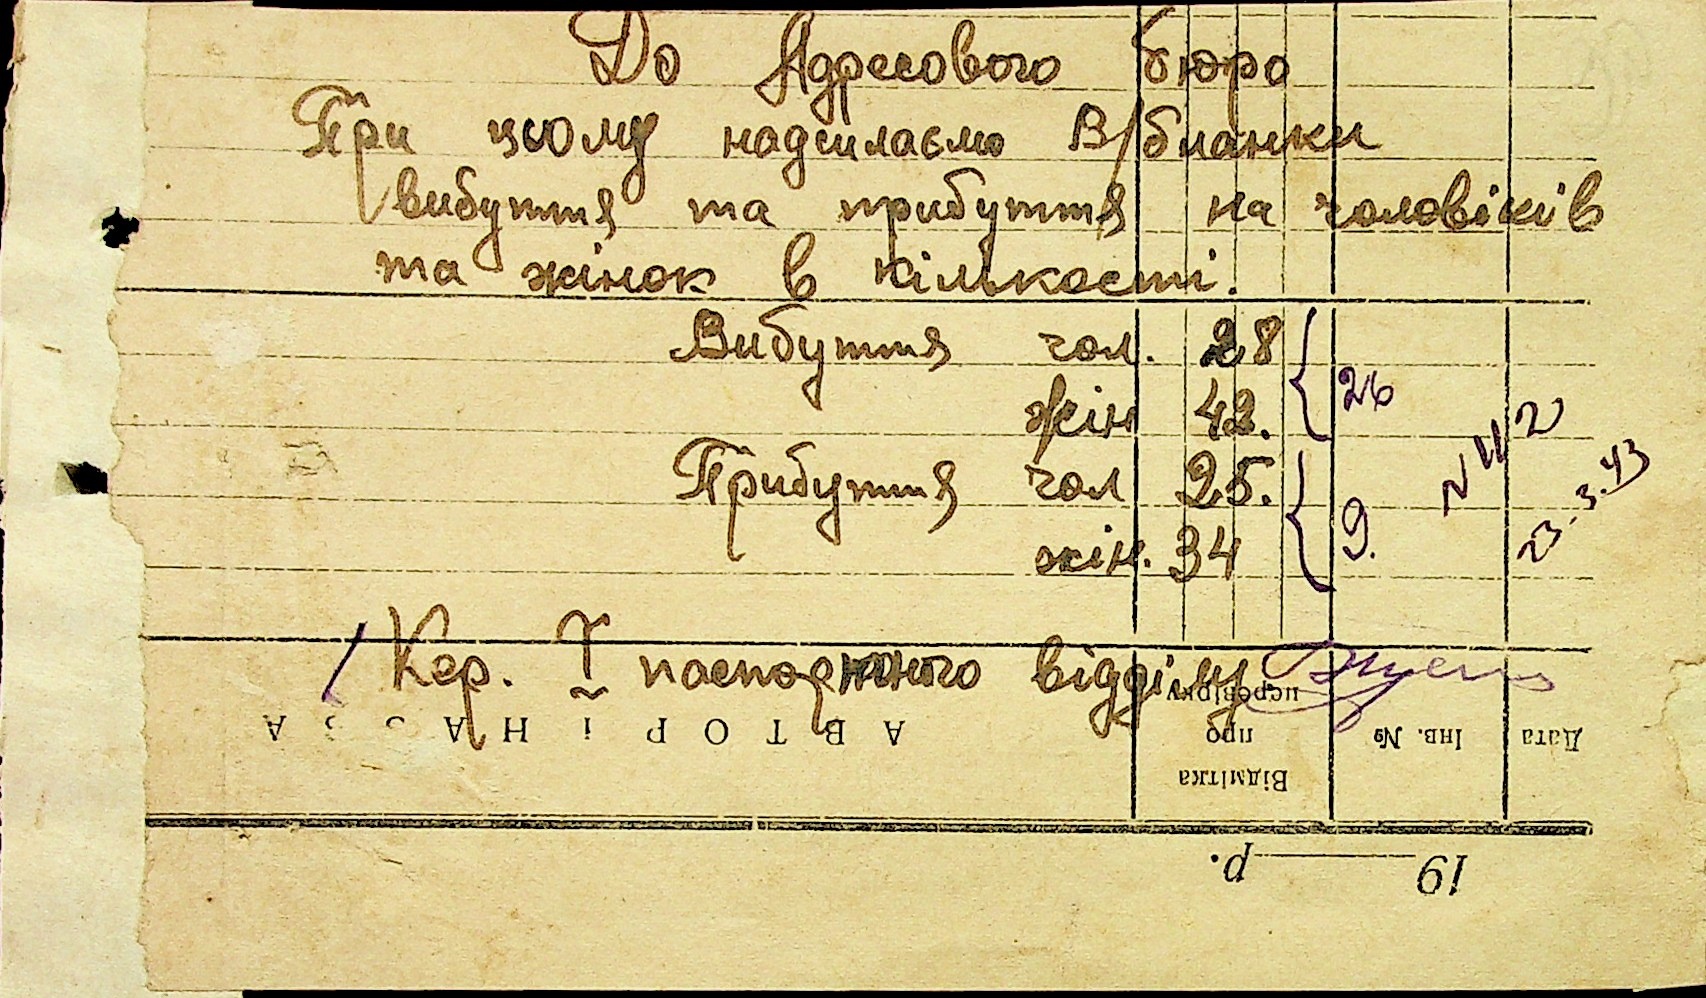 До Адресового бюро
При цьому надсилаємо В/бланки
вибуття та прибуття на чоловіків
та жінок в кількості.
Вибуття чол. 28
жін 42. 26
Прибуття чол 25.
жін. 34 9.
N 112
23.3.43
Кер. I паспортного відділу
перевірку
АВТОР і НАЗВА про Інв. № Дата
Відмітка
19 р.